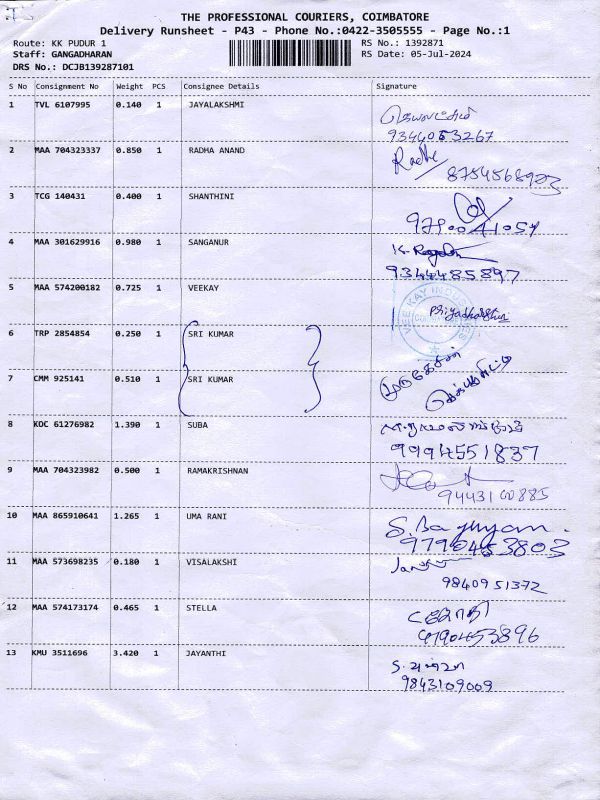 THE PROFESSIONAL COURIERS, COIMBATORE
Delivery Runsheet - P43 - Phone No.:0422-3505555 - Page No.:1
Route: KK PUDUR 1
RS No.: 1392871
Staff: GANGADHARAN
RS Date: 05-Jul-2024
DRS No.: DCJB139287101
S No Consignment No Weight PCS Consignee Details Signature
1 TVL 6107995 0.140 1 JAYALAKSHMI
9344053267
2 MAA 704323337 0.850 1 RADHA ANAND Radhe
8754568903
3 TCG 140431 0.400 1 SHANTHINI
4 MAA 301629916 0.980 1 SANGANUR
9344485897
5 MAA 574200182 0.725 1 VEEKAY
VEE KAY INDUSTRIES
Priyadharshini
6 TRP 2854854 0.250 1 SRI KUMAR
முருகேசன்
7 CMM 925141 0.510 1 SRI KUMAR
8 KOC 61276982 1.390 1 SUBA
9994551837
9 MAA 704323982 0.500 1 RAMAKRISHNAN
9443100885
10 MAA 865910641 1.265 1 UMA RANI
9790453803
11 MAA 573698235 0.180 1 VISALAKSHI
9840951372
12 MAA 574173174 0.465 1 STELLA
9790453896
13 KMU 3511696 3.420 1 JAYANTHI
9843109009